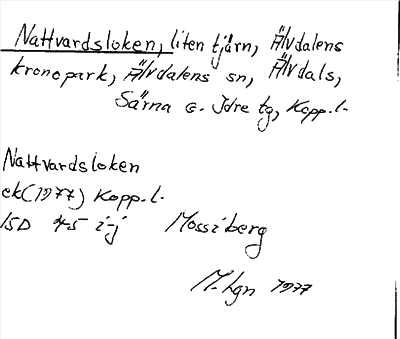 Nattvardsloken, liten tjärn, Älvdalens
kronopark, Älvdalens sn, Älvdals,
Särna o. Idre tg, Kopp. l.
Nattvardsloken
ek (1977) Kopp. l.
ISD 45 i-j Mossiberg
M. Lgn 1977